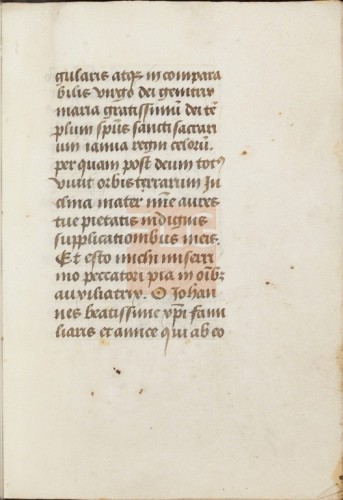 gularis atq3 in compara
bilis virgo dei genitrix
maria gratissimū dei tē
plum spūs sancti sacrari
um ianua regni celorū.
per quam post deum totꝰ
viuit orbis terrarum In
clina mater mīe aures
tue pietatis indignis
supplicationibus meis.
Et esto michi miserri
mo peccatori pia in oībꝫ
auxiliatrix. O Johan
nes beatissime xp̄i fami
liaris et amice qui ab eo